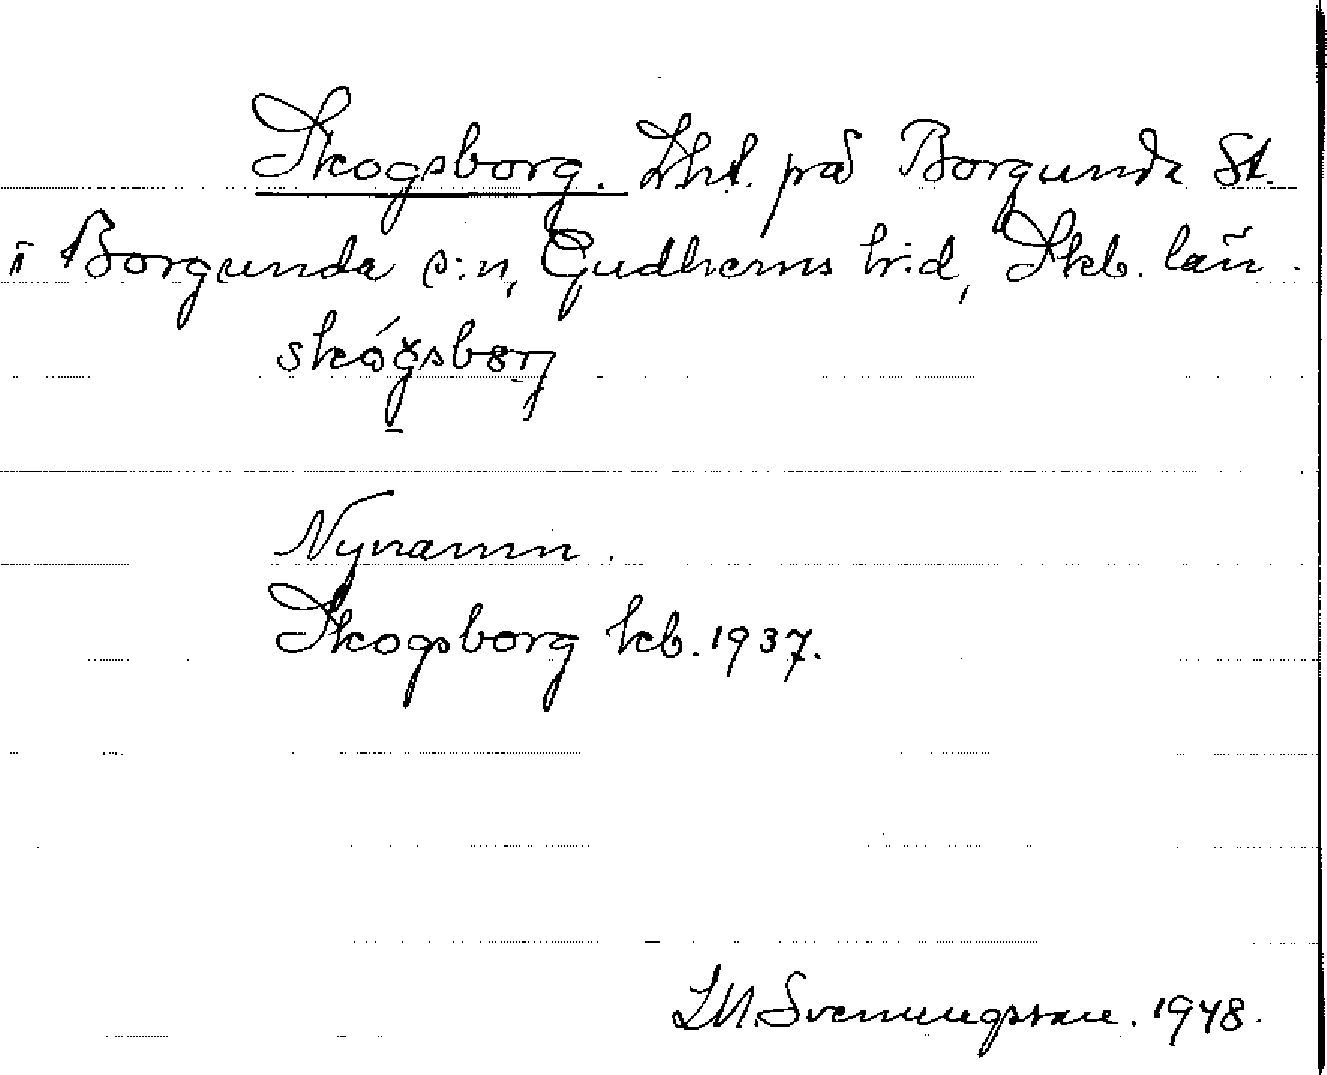 Skogsborg. Lht. på Borgunda St.
i Borgunda s:n, Gudhems h:d, Skb. län.
skógsborj
Nynamn.
Skogsborg kb. 1937.
1948.